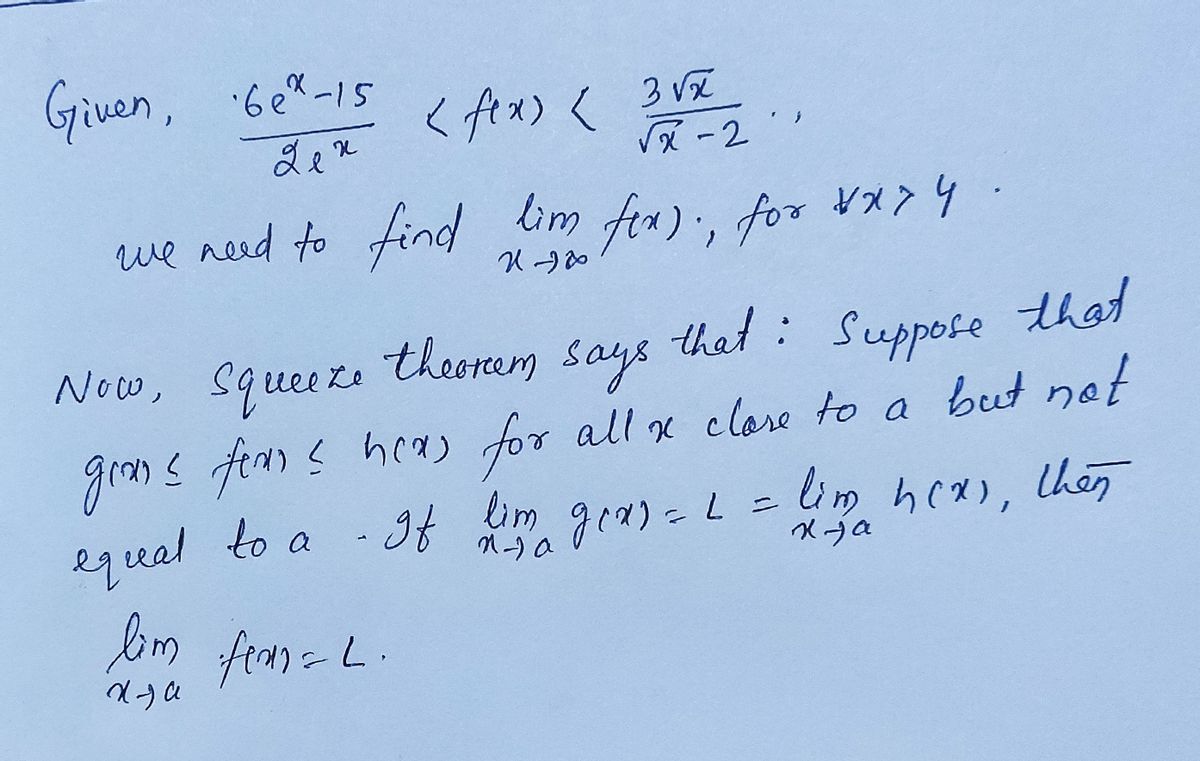 Given, (6e^x - 15)/(2e^x) < f(x) < (3√x)/(√x - 2) .,
we need to find lim_{x→∞} f(x)., for ∀x > 4 .
Now, squeeze theorem says that : Suppose that
g(x) ≤ f(x) ≤ h(x) for all x close to a but not
equal to a . If lim_{x→a} g(x) = L = lim_{x→a} h(x), then
lim_{x→a} f(x) = L.